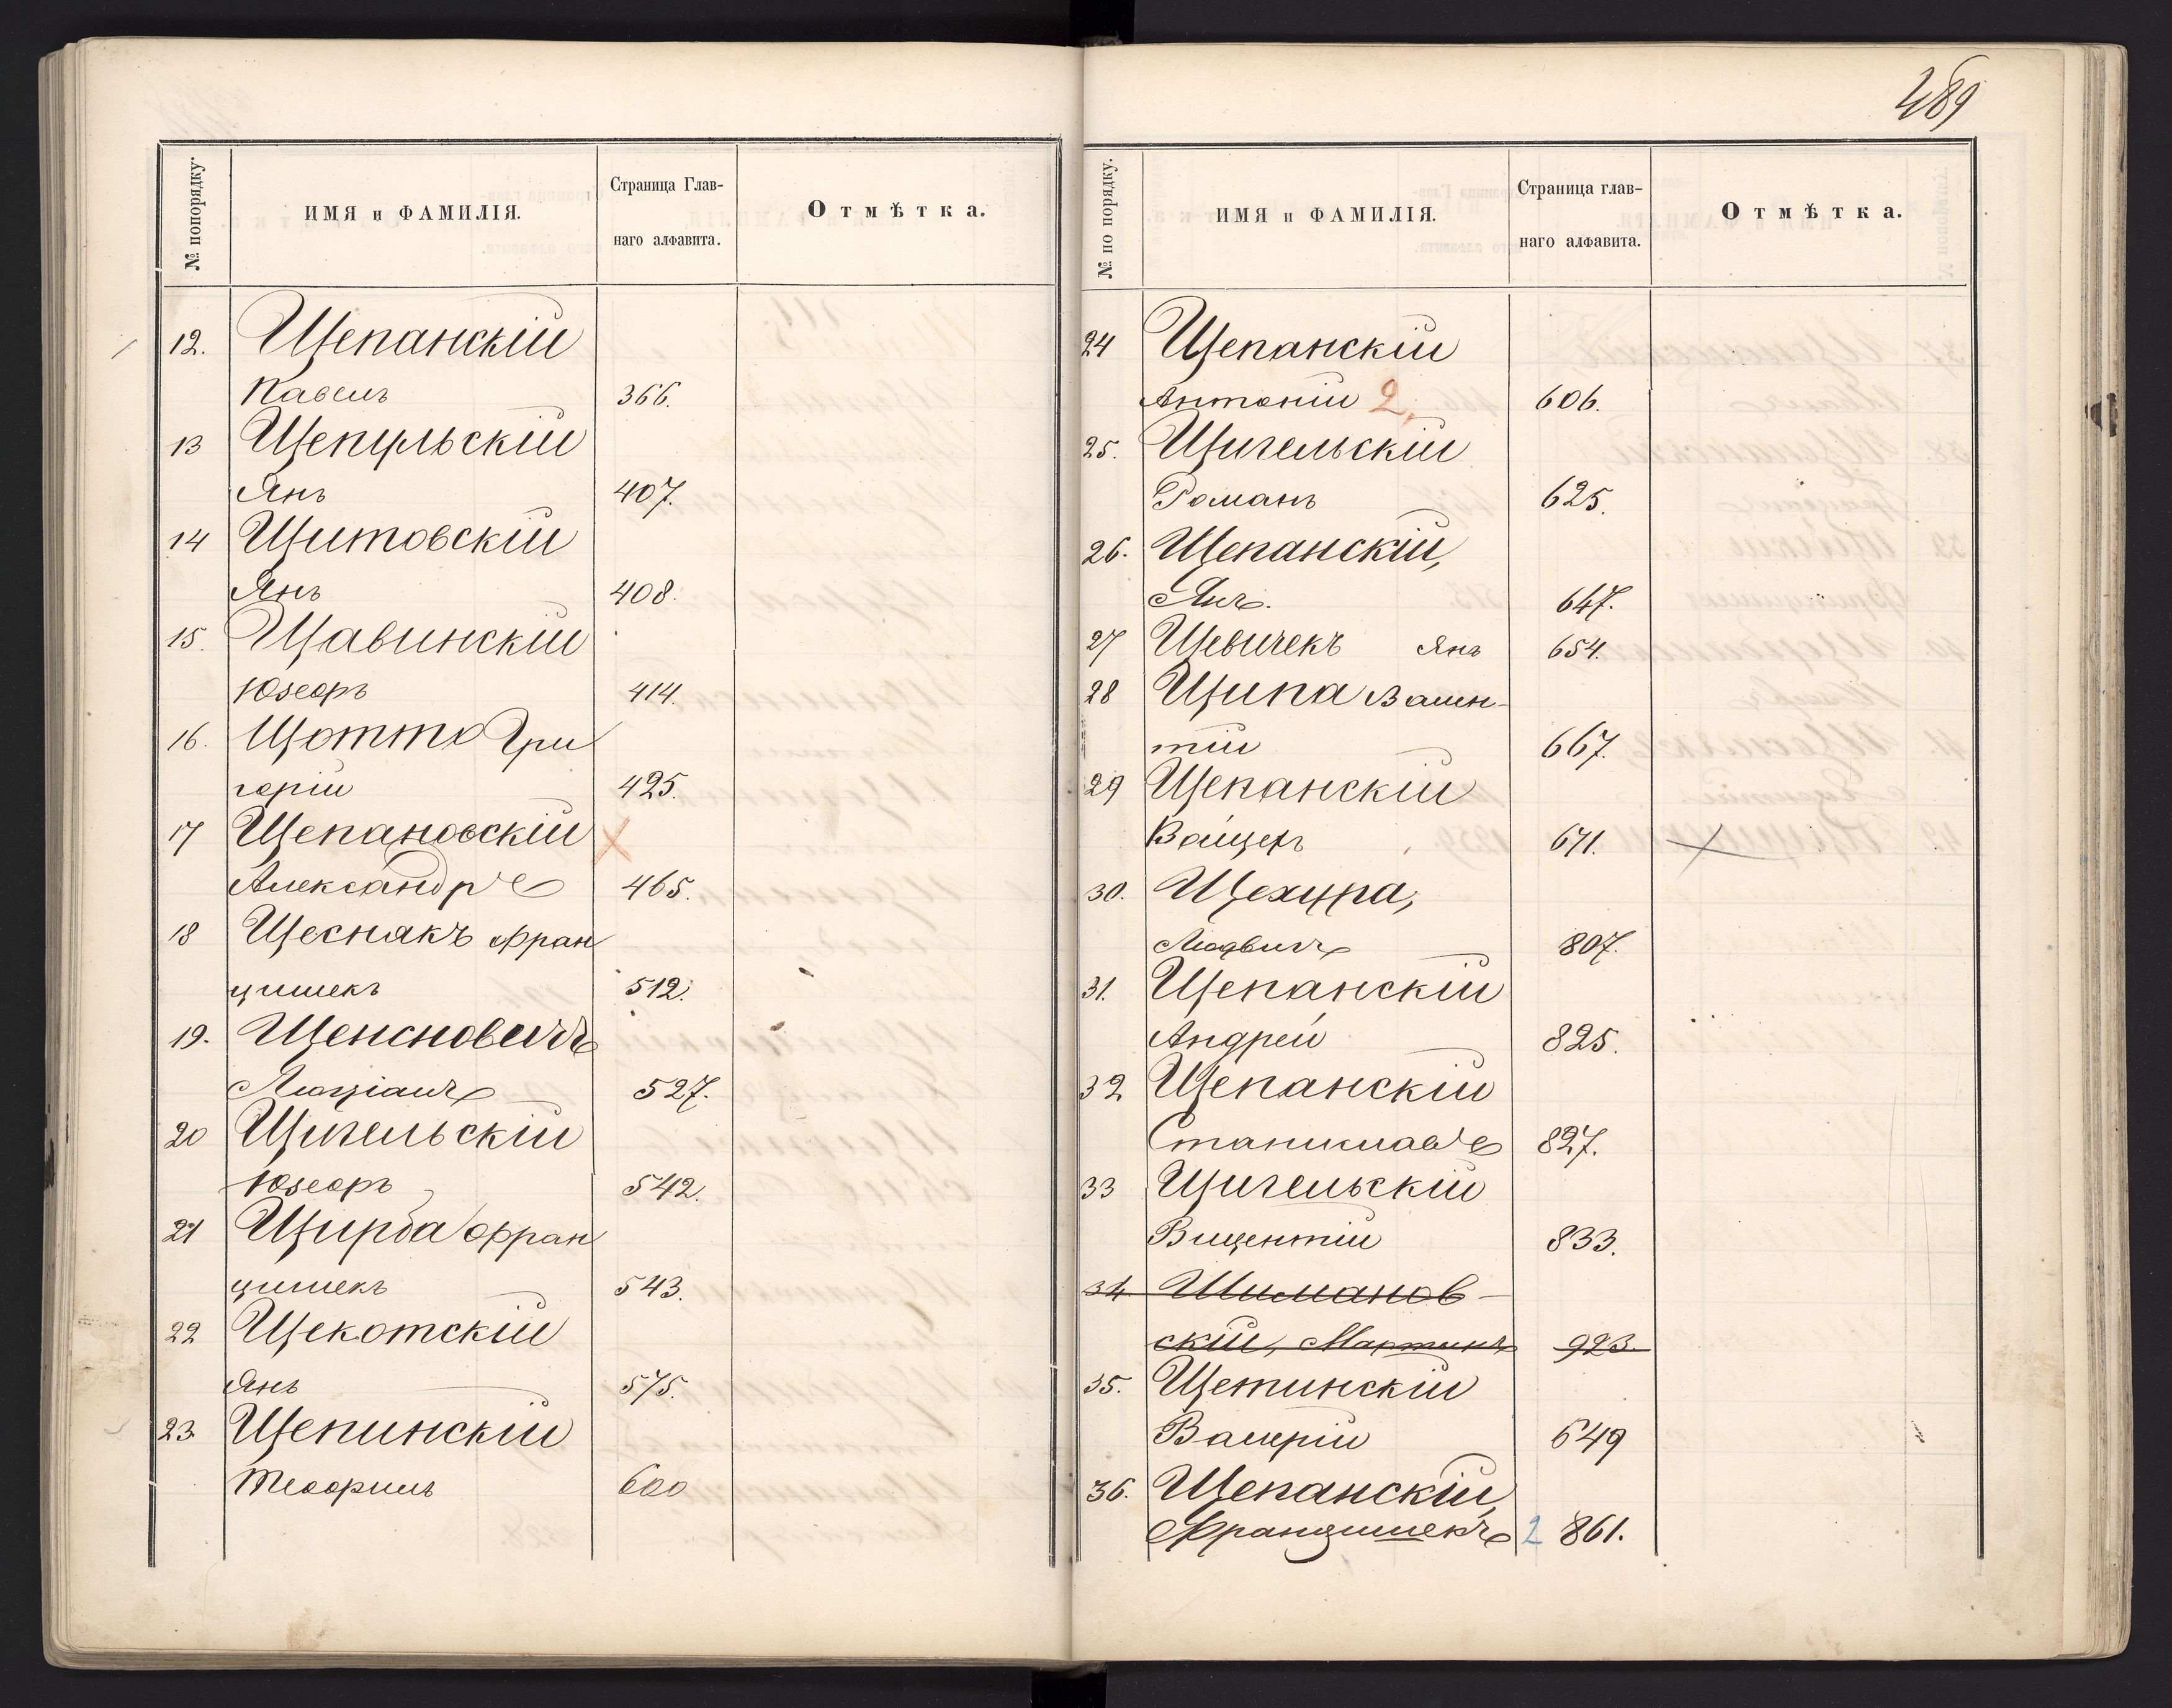 № попорядку.
ИМЯ и ФАМИЛІЯ.
Страница Глав-
наго алфавита.
Отмѣтка.
12. Щепанскій
Павелъ 366.
13 Щепульскій
Янъ 407.
14 Щитовскій
Янъ 408.
15. Щавинскій
Юзефъ 414.
16. Щотто Гри
горій 425.
17 Щепановскій
Александръ 465.
18 Щеснякъ Фран
цишекъ 512.
19. Щенсновичъ
Люціанъ 527.
20 Щигельскій
Юзефъ 542.
21 Щирба Фран
цишекъ 543.
22 Щекотскій
Янъ 575.
23. Щепинскій
Теофилъ 600
489
№ по порядку.
ИМЯ и ФАМИЛІЯ.
Страница глав-
наго алфавита.
Отмѣтка.
24 Щепанскій
Антоній 2, 606.
25. Щигельскій
Романъ 625.
26. Щепанскій,
Янъ. 647.
27 Щевичекъ Янъ 654.
28 Щипа Вален-
тій 667.
29 Щепанскій
671.
30. Щехура,
Людвигъ 807.
31. Щепанскій
Андрей 825.
32 Щепанскій
Станиславъ 827.
33 Щигельскій
Вицентій 833.
34 Шиманов-
скій, Мартинъ 923.
35. Щетинскій
Валерій 649
36. Щепанскій,
Францишекъ 2 861.